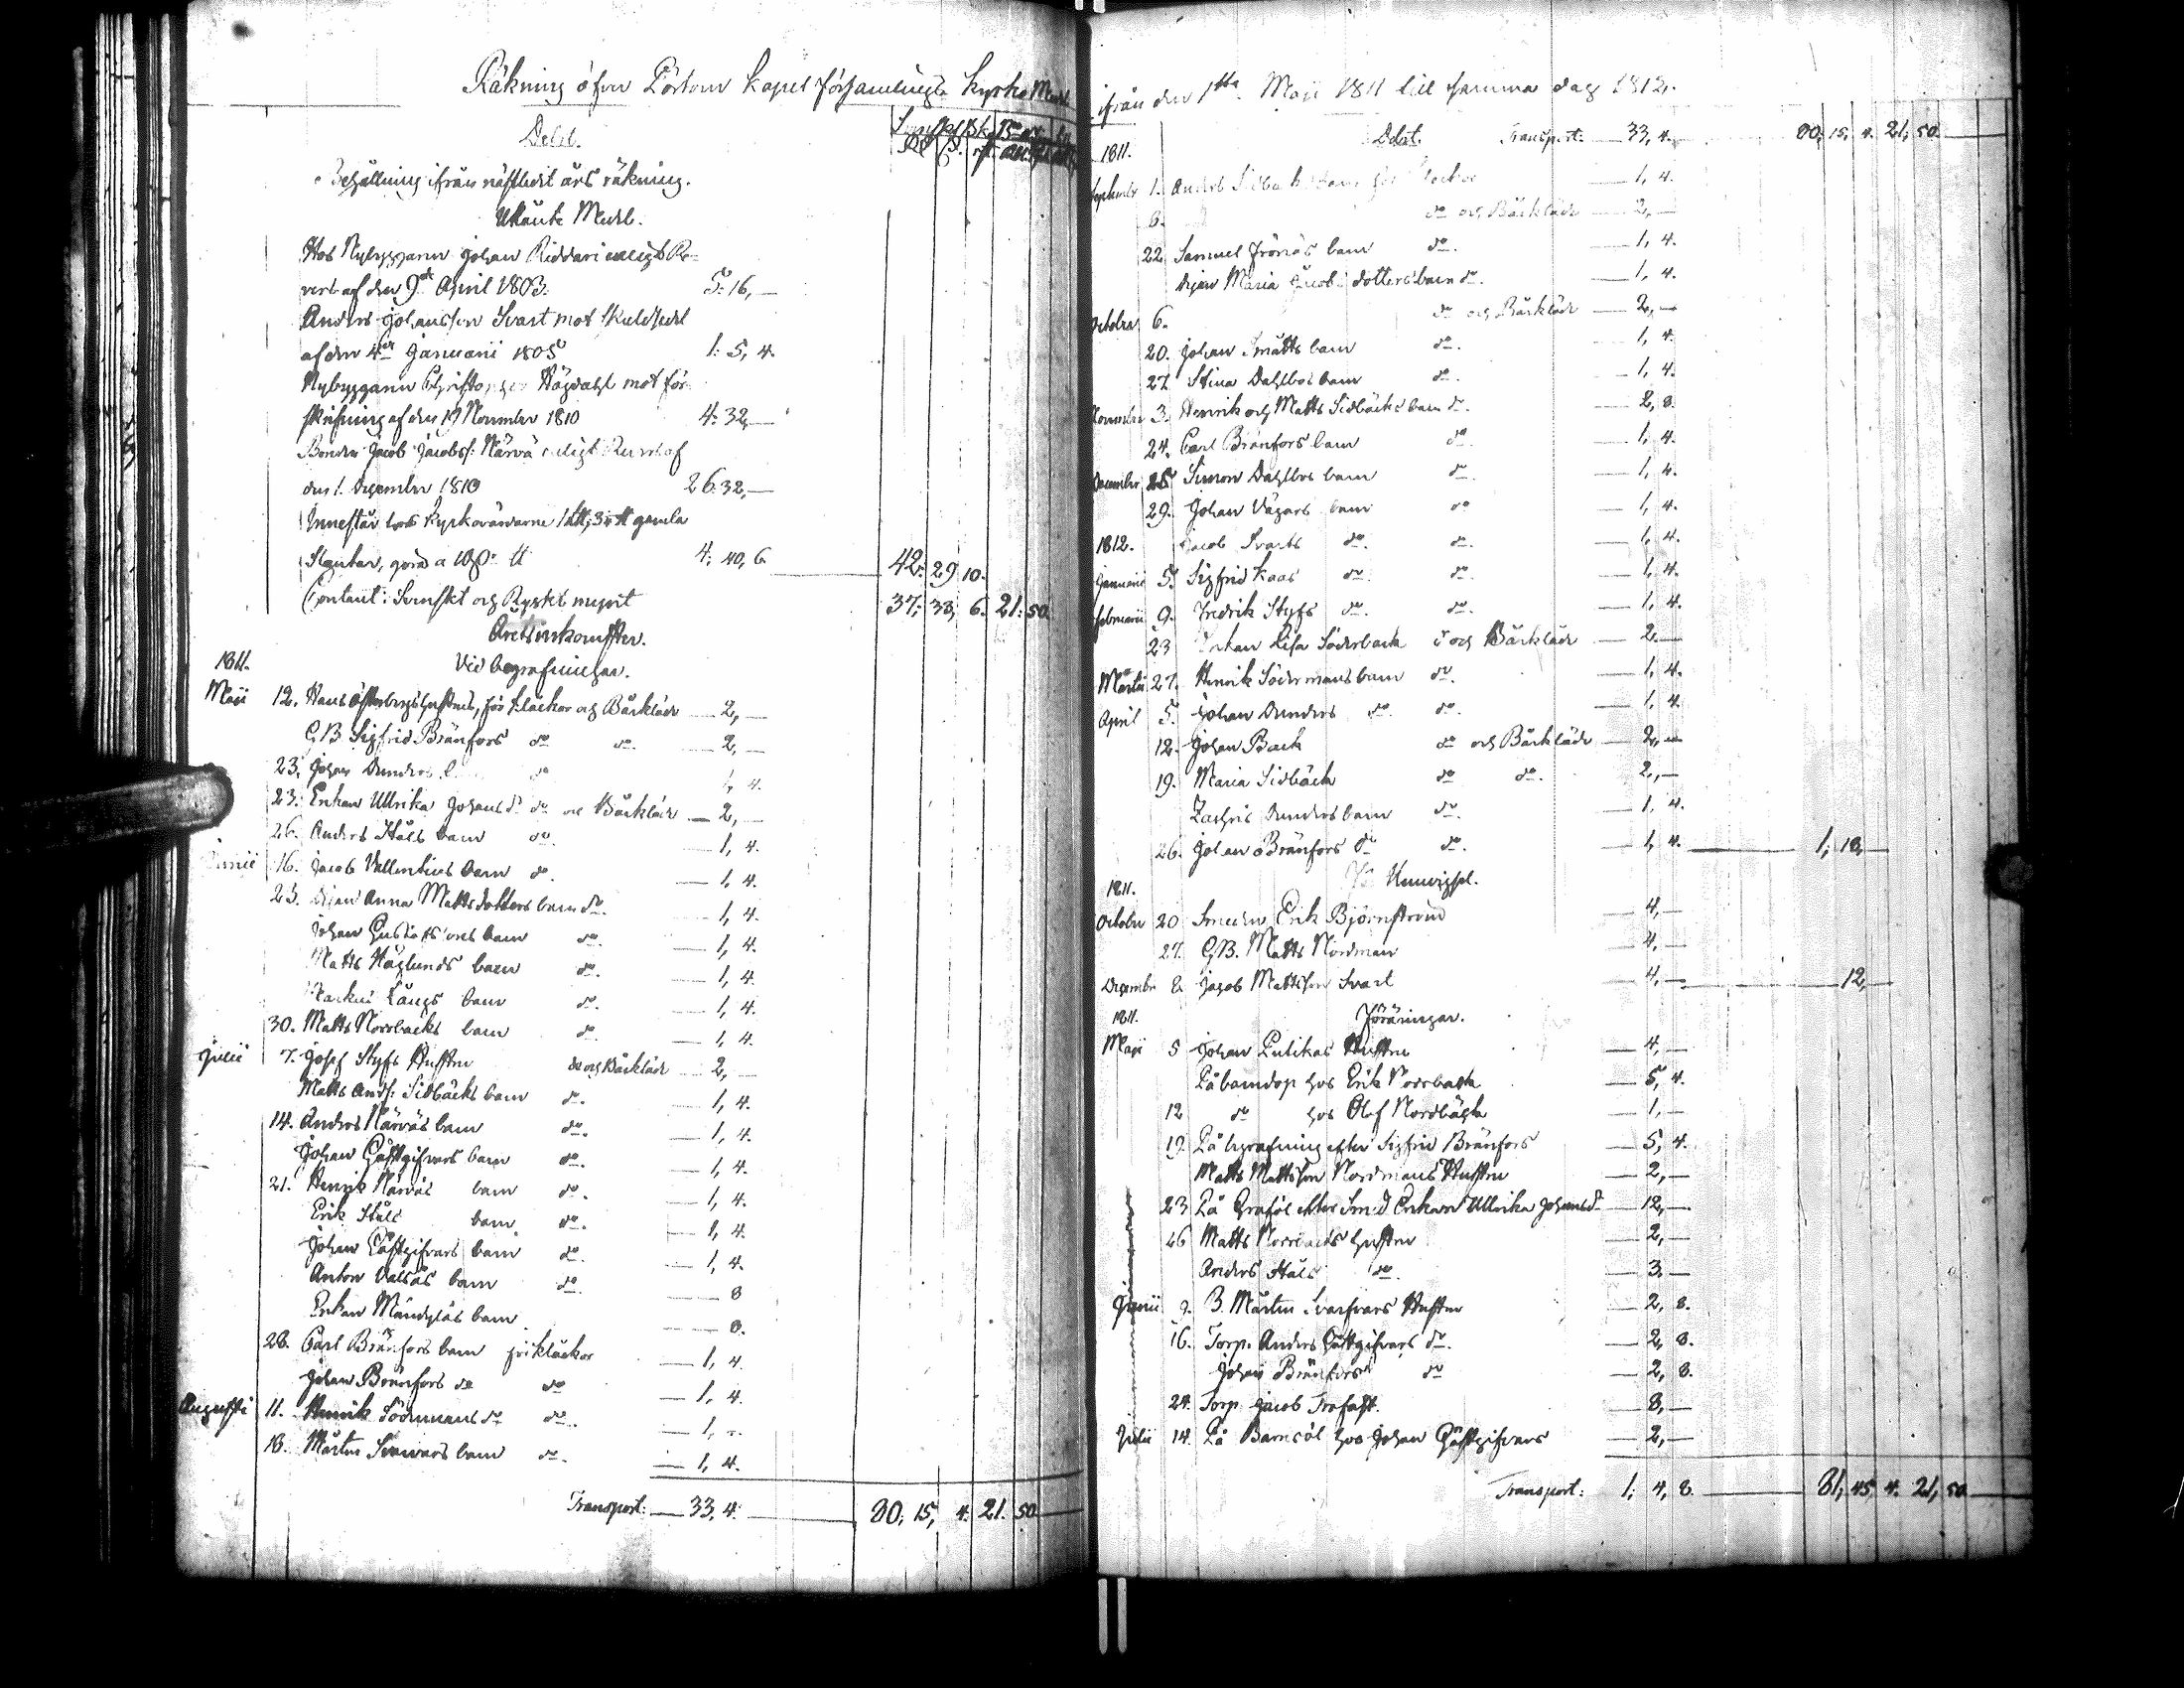 Räkning öfver Pörtom Kapel församlings Kyrko Medl
Debet.
Behållning ifrån nästledit års räkning.
Utlänte Medl.
Hos Nybyggaren Johan Riddari enligt Re-
vers af den 9de April 1803. 5: 16, —
Anders Johansson Svart mot skuldsedel
af den 4de Januarii 1805 1: 5, 4.
Nybyggaren Christopher Högdahl mot för-
skrifning af den 19 November 1810 4: 32, —
Bonden Jacob Jacobss: Närvä enligt Revers af
den 1. December 1810 26: 32, —
Innestår hos Kyrkovärdarne gamla
Slantar, 4: 40, 6. 42: 29 10.
Contant: Svenskt och Ryskt mynt 37: 33, 6. 21: 50.
Årets inkomster.
1811. Vid begrafningar.
Maji 12. Hans Österbergs hustru, för klockor och Bårkläde — 2, —
GB Sigfrid Bränfors do do — 2, —
23. Johan Dunders do 1, 4.
23. Enkan Ullrika Johansdr do och Bårkläde — 2, —
26. Anders Ståls barn do — 1, 4.
Junii 16. Jacob Vallentins barn do — 1, 4.
23. Pigan Anna Mattsdotters barn do — 1, 4.
Johan Gustafssons barn do — 1, 4.
Matts Höglunds barn do — 1, 4.
Långs barn do — 1, 4.
30. Matts Norrbacks barn do — 1, 4.
Julii 7. Josef Styfs Hustru do och Bårkläde — 2, —
Matts Ands: Sidbäcks barn do — 1, 4.
14. Anders Närväs barn do — 1, 4.
Johan Gästgifvars barn do — 1, 4.
21. Henrik Närväs barn do — 1, 4.
Erik Ståls barn do — 1, 4.
Johan Gästgifvars barn do — 1, 4.
Anton barn do — 8
Enkan barn — 8.
28. Carl Bränfors barn för klockor — 1, 4.
Johan Bränfors do do — 1, 4.
Augusti 11. Henrik Södermans do do — 1, 4.
18. Mårten Svarvars barn do — 1, 4.
Transport: — 33, 4. — 80, 15, 4. 21. 50
ifrån den 1sta Maji 1811 till samma dag 1812.
1811. Debet. Transport: — 33, 4. 80, 15, 4. 21, 50.
September 1. Anders Sidbäcks barn för klockor — 1, 4.
8. do och Bårkläde — 2, —
22 Samuel barn do — 1, 4.
Pigan Maria Jacobs dotters barn do — 1, 4.
October 6. do och Bårkläde — 2, —
20. Johan Smätts barn do — 1, 4.
27. Stina Dahlbos barn do — 1, 4.
November 3. Henrik och Matts Sidbäcks barn do — 2, 8.
24. Carl Bränfors barn do — 1, 4.
December 25 Simon Dahlbos barn do — 1, 4.
29. Johan Vägars barn do — 1, 4.
1812. Jacob Svarts do do — 1, 4.
Januarii 5. Sigfrid Kaas do do — 1, 4.
Februarii 9. Fredrik Styfs do do — 1, 4.
23 Enkan Lisa Söderback do och Bårkläde — 2, —
Martii 27. Henrik Södermans barn do — 1, 4.
April 5. Johan Dunders do do — 1, 4.
12. Johan Back do och Bårkläde — 2, —
19. Maria Sidbäck do do — 2, —
Zachris Dunders barn do — 1, 4.
26. Johan Bränfors do do — 1, 4. — 1, 18, —
1811. Vid Utvigsel.
October 20 Smeden Erik Björnström — 4, —
27. GB. Matts Nordman — 4, —
December 8. Jacob Mattsson Svart — 4, — — 12, —
1811. Föräringar.
Maji 5 Johan Pulikas Hustru — 4, —
På barndop hos Erik Norrback — 5, 4.
12 do hos Olof Nordbäck — 1, —
19. På begrafning efter Sigfrid Bränfors — 5, 4.
Matts Mattsson Nordmans Hustru — 2, —
23 På Graföl efter Smed Enkan Ullrika Johansdr — 12, —
26 Matts Norrbacks hustru — 2, —
Anders Ståls do — 3, —
Junii 9. B. Mårten Svarfvars Hustru — 2, 8.
16. Torp. Anders Gästgifvars do — 2, 8.
Johan Bränfors do — 2, 8.
24. Torp. Jacob Trofast. — 8, —
Julii 14. På Barnsöl hos Johan Gästgifvars — 2, —
Transport: 1, 4, 8. — 81, 45, 4. 21, 50